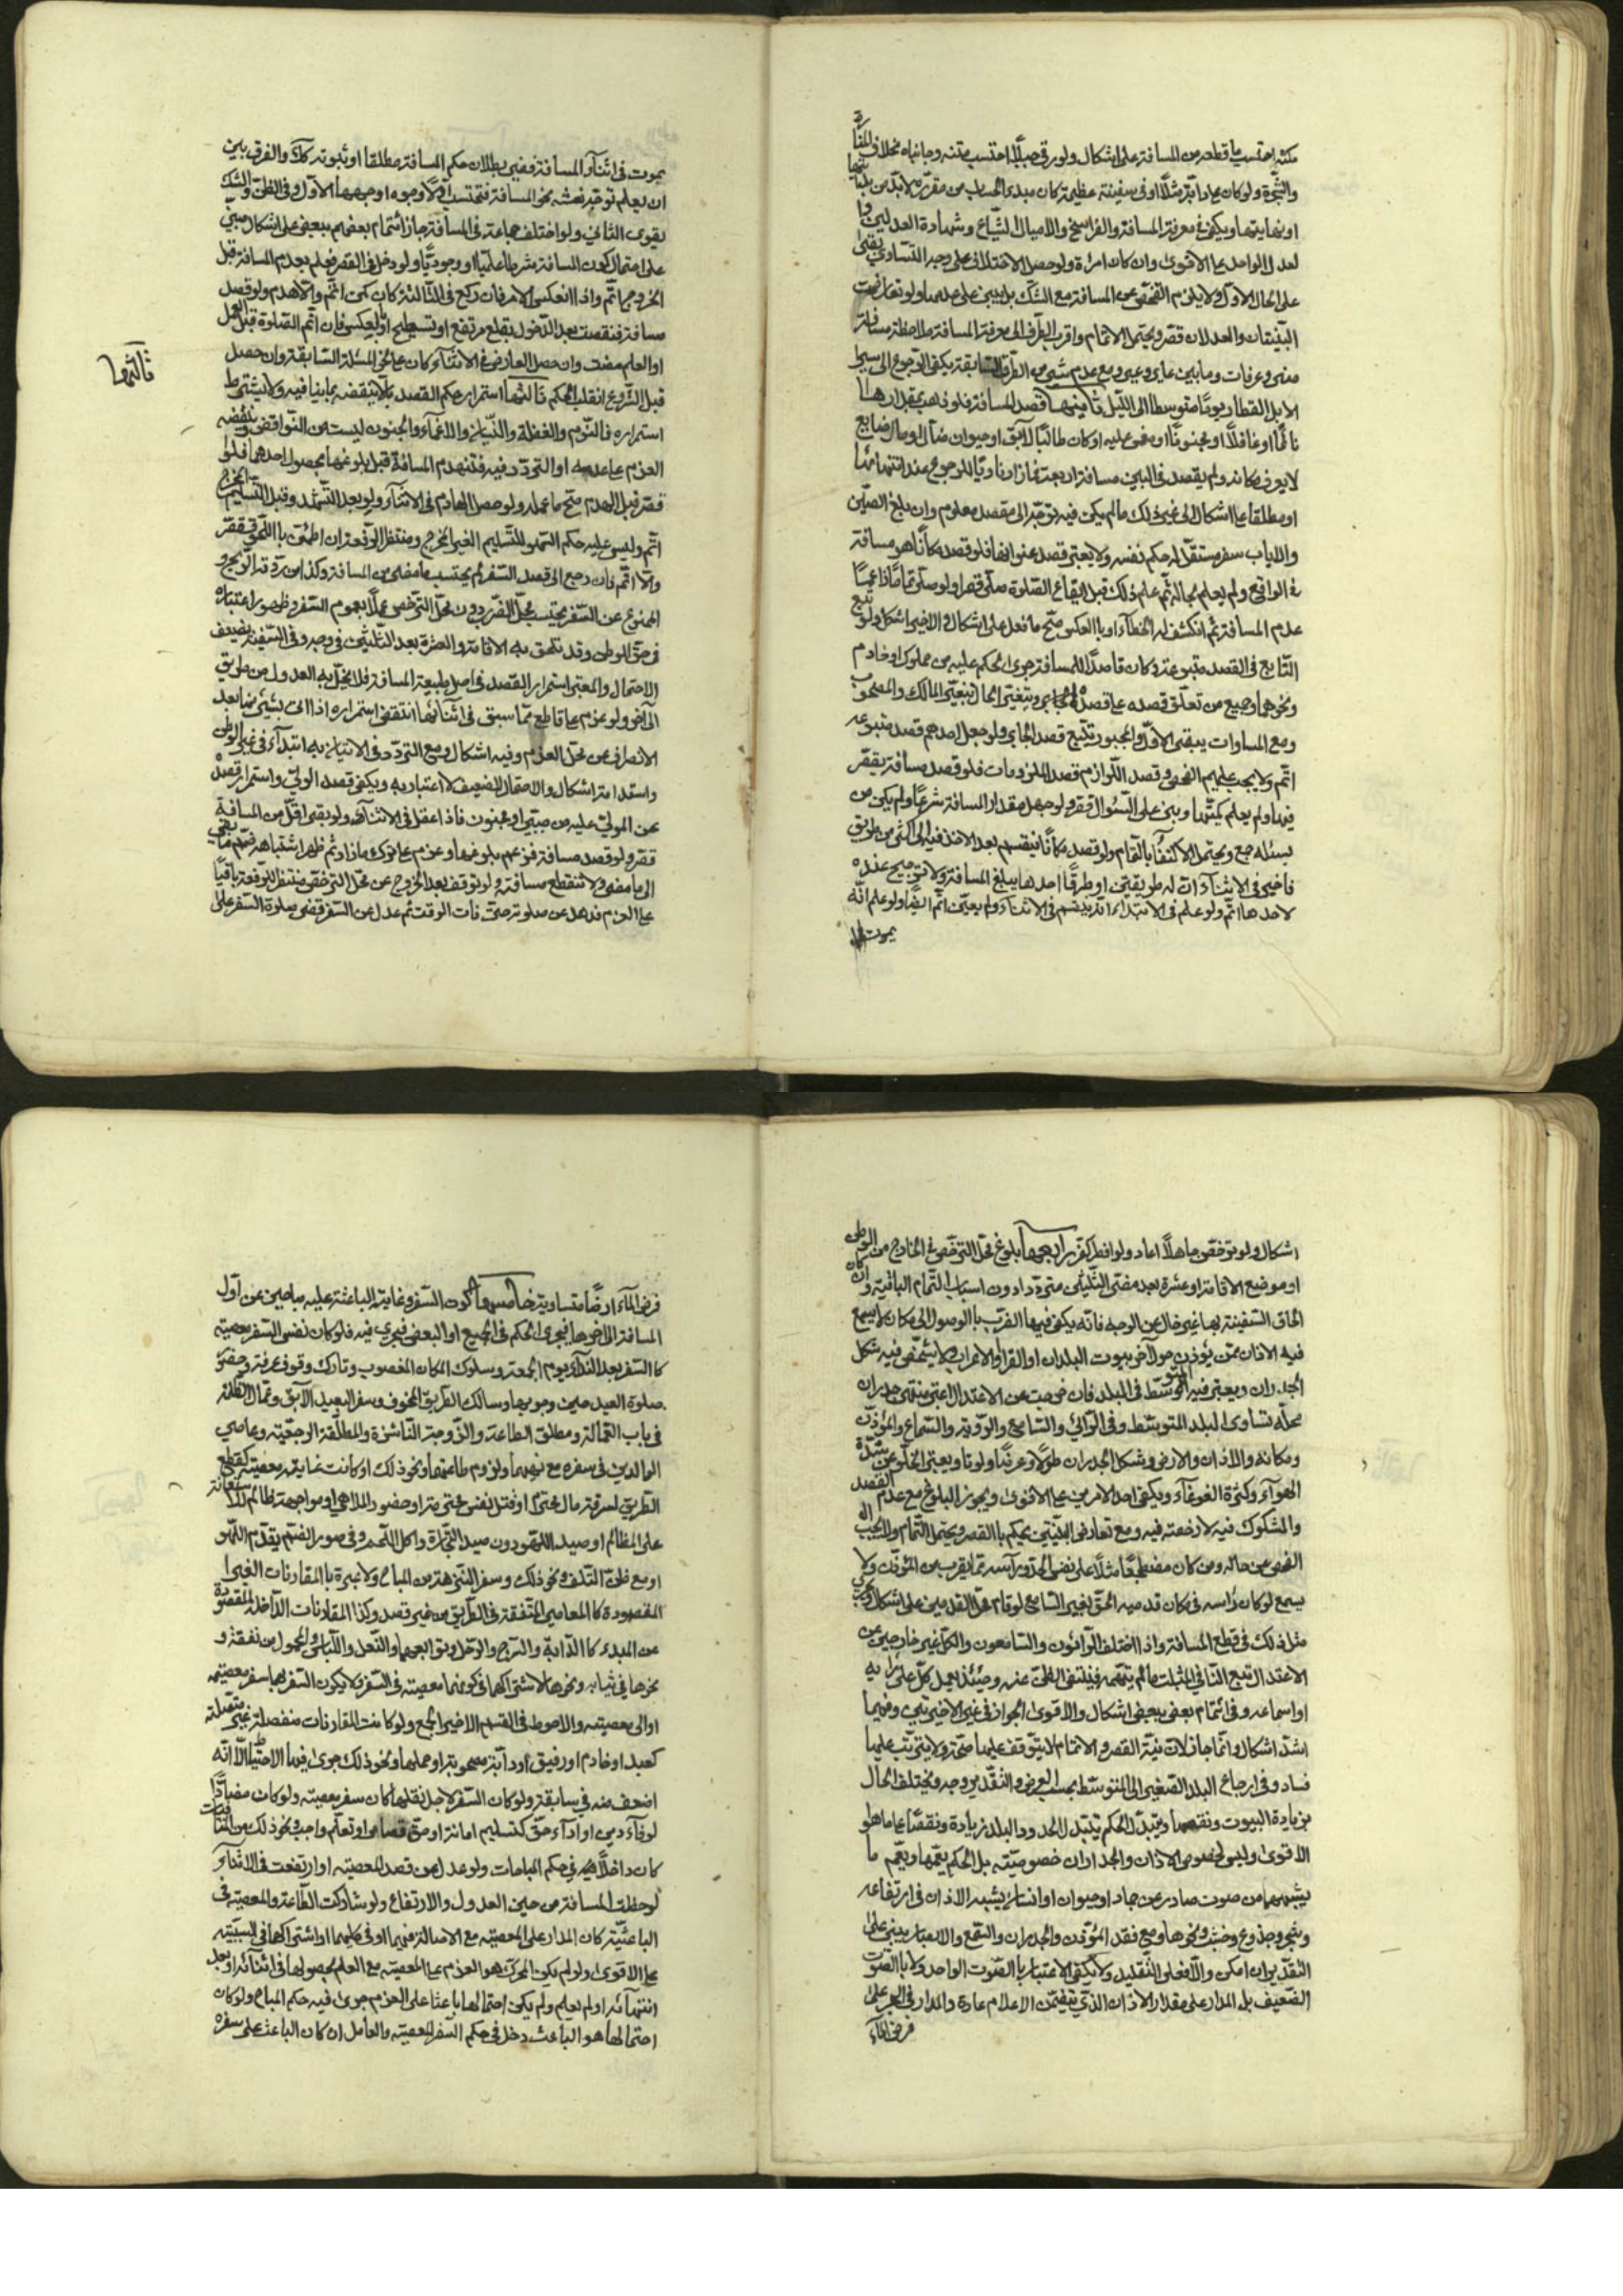 مكثه احتسب ما قطعه من المسافة على اشكال ولو رقى جبلا احتسب متنه وجانباه بخلاف المنارة
والشجرة ولو كان على دابة مثلا او فى سفينة عظيمة كان مبدء الحساب من مقره لا بد من
او نهايتها ويكفى فى معرفة المسافة والفراسخ والاميال الشياع وشهادة العدلين وا
لعدل الواحد على الاقوى وان كان امراة ولو حصل الاختلاف على وجه التساوى بقى
على الحال الاول ولا يلزم التفحص عن المسافة مع الشك بل يبنى على عدمها ولو تعارضت
البينتان والعدلان قصر ويحتمل الاتمام واقرب الطرف الى معرفة المسافة ملاحظة مسافة
منى وعرفات وما بين عاير وعير ومع عدم شئ من الطرق السابقة يكفى الرجوع الى سير
الابل القطار يوما متوسطا الى الليل ثانيها قصد المسافة فلو ذهب بمقدارها
نائما او غافلا او مجنونا او مغمى عليه او كان طالبا لآبق او حيوان ضال او مال ضايع
لا يعرف مكانه ولم يقصد فى البين مسافة اربعة فما زاد ناويا للرجوع عند انتهائها
او مطلقا على اشكال الى غير ذلك مما لم يكن فيه توجه الى مقصد معلوم وان بلغ الصين
والاياب سفر مستقل له حكم نفسه ولا يعتبر قصد عنوانها فلو قصد مكانا هو مسافة
فى الواقع ولم يعلم بحاله ثم علم ذلك قبل ايقاع الصلوة صلى قصرا ولو صلى تماما زاعما
عدم المسافة ثم انكشف له الخطاء او بالعكس صح ما فعل على اشكال والاخير اشكل ولو تبع
التابع فى القصد متبوعه وكان قاصدا للمسافة جرى الحكم عليه من مملوك او خادم
ونحوهما وجميع من تعلق قصده على قصد الجابر ويتغير الحال بتغير المالك والمصحوب
ومع المساوات يبقى الاول والمجبور يتبع قصد الجابر ولو جهل احدهم قصد متبوعه
اتم ولا يجب عليهم الفحص وقصد اللوازم قصد الملزومات فلو قصد مسافة يقصر
فيها ولم يعلم بكميتها وبنى على السؤال قصر ولو جهل مقدار المسافة شرعا ولم يكن من
يسئله جمع ويحتمل الاكتفاء بالتمام ولو قصد مكانا فينقسم بعد الاخذ فيه الى اكثر من طريق
فاخبر فى الاثناء ان له طريقين او طرقا احدها يبلغ المسافة ولا ترجيح عنده
لاحدها اتم ولو علم فى الابتداء انه ينقسم فى الاثناء ولم يعين اتم ايضا ولو علم انه
يموت
يموت فى اثناء المسافة ففى بطلان حكم المسافة مطلقا او ثبوته كك والفرق بين
ان يعلم توجه نعشه نحو المسافة فتحتسب اولا وجوه اوجهها الاول وفى الظن والشك
يقوى الثانى ولو اختلف جماعة فى المسافة جاز ائتمام بعضهم ببعض على اشكال مبنى
على احتمال كون المسافة شرطا علميا او وجوديا ولو دخل فى القصر فعلم بعدم المسافة قبل
الخروج اتم واذا انعكس الامر فان ركع فى الثالثة كان كمن اتم والا هدم ولو قصد
مسافة فنقصت بعد الدخول بقلع مرتفع او تسطيح او بالعكس فان اتم الصلوة قبل العمل
او العلم مضت وان حصل العارض فى الاثناء كان على نحو المسئلة السابقة وان حصل
قبل الشروع انقلب الحكم ثالثها استمرار حكم القصد بالا ينقضه بما ينافيه ولا يشترط
استمراره فالنوم والغفلة والنسيان والاغماء والجنون ليست من النواقض وينقضه
العزم على عدمه او التردد فيه فتنهدم المسافة قبل بلوغها بحصول احدهما فلو
قصر قبل الهدم صح ما عمله ولو حصل الهادم فى الاثناء ولو بعد التشهد وقبل التسليم المخرج
اتم وليس عليه حكم السهو للتسليم الغير المخرج ومنتظر الرفقة ان اطمئن باللحوق قصر
والا اتم فان رجع الى قصد السفر لم يحتسب ما مضى من المسافة وكذا من ردته الريح و
الممنوع عن السفر يحتسب محل الضرب دون محل الترخص عملا بعموم السفر وظهور اعتباره
فى حق الوطن وقد تلحق به الاقامة والعشرة بعد الثلثين فى وجه وفى السفينة يضعف
الاحتمال والمعتبر استمرار القصد فى اصل طبيعة المسافة فلا يخل به العدول من طريق
الى آخر ولو عزم على قاطع مما سبق فى اثنائها انتقض استمراره اذا اتى بشئ منها بعد
الانصراف عن محل العزم وفيه اشكال ومع التردد فى الاتيان به ابتداء فى غير الوطن
واستدامة اشكال والاحتمال الضعيف لا اعتبار به ويكفى قصد الولى واستمرار قصده
عن المولى عليه من صبى او مجنون فاذا عقل فى الاثناء ولو بقى اقل من المسافة
قصر ولو قصد مسافة فزعم بلوغها وعزم على ترك ما زاد ثم ظهر اشتباهه ضم ما بقى
الى ما مضى ولا تنقطع مسافته ولو توقف بعد الخروج عن محل الترخص منتظرا لرفقة باقيا
على العزم فذهل عن صلوته حتى فات الوقت ثم عدل عن السفر قضى صلوة السفر على
ثالثها
اشكال ولو ترخص جاهلا اعاد ولو افطر كفر رابعها بلوغ محل الترخص فى الخارج من الوطن
او موضع الاقامة او عشرة بعد مضى الثلثين مترددا دون اسباب التمام الباقية وان كان
الحاق السفينة بها غير خال عن الوجه فانه يكفى فيها الضرب بالوصول الى مكان لا يسمع
فيه الاذان ممن يؤذن حول آخر بيوت البلدان او القرا او الاعراب ولا يشخص فيه شكل
الجدران ويعتبر فيه التوسط فى البلد فان خرجت عن الاعتدال اعتبر منتهى جدران
محله تساوى البلد المتوسط وفى الرائى والسامع والرؤية والسماع والمؤذن
ومكانه والاذان والارض وشكل الجدران طولا وعرضا ولونا ويعتبر الخلو عن شدة
الهواء وكثرة الغوغاء ويكفى احد الامرين على الاقوى ويجوز البلوغ مع عدم القصد
والمشكوك فيه لا رخصة فيه ومع تعارض البينتين يحكم بالقصر ويحتمل التمام ولا يجب
الفحص عن حاله ومن كان مضطجعا مثلا على نفس الحد ورأسه مما يقرب من المؤذن ولا
يسمع لو كان رأسه فى مكان قدميه الحق بغير السامع لو قام محل القدمين على اشكال
مثل ذلك فى قطع المسافة واذا اختلف الراؤن والسامعون والكل غير خارجين عن
الاعتدال تبع النافى المثبت ما لم يتهمه فينتفى الظن عنه وحينئذ يعمل كل على رايه
او اسماعه وفى ائتمام بعض ببعض اشكال والاقوى الجواز فى غير الاخيرتين وفيهما
اشد اشكال وانما جاز لان نية القصر والاتمام لا يتوقف عليها صحة ولا يترتب عليها
فساد وفى ارجاع البلد الصغير الى المتوسط بحسب العرض والتقدير وجه ويختلف الحال
بزيادة البيوت ونقصها ويتبدل الحكم بتبدل الحدود البلد زيادة ونقصا على ما هو
الاقوى وليس لخصوص الاذان والجدران خصوصيته بل الحكم يعمها ويعم ما
يشبههما من صوت صادر عن جماد او حيوان او انسان يشبه الاذان فى ارتفاعه
وشجر وجذوع وخشب ونحوها ومع فقد المؤذن والجدران والسمع والابصار يبنى على
التقدير ان امكن والا فعلى التقليد ولا يكفى الاعتبار بالصوت الواحد ولا بالصوت
الضعيف بل المدار على مقدار الاذان الذى يتضمن الاعلام عادة والمدار فى البحر على
فرض الماء
فرض الماء ارضا متساوية خامسها كون السفر وغايته الباعثة عليه مباحين من اول
المسافة الى آخرها فيجرى الحكم فى الجميع او البعض فيجرى فيه فلو كان نفس السفر معصية
كالسفر بعد النداء يوم الجمعة وسلوك المكان المغصوب وتارك وقوف عرفة وحضور
صلوة العيد حين وجوبها وسالك الطريق المخوف وسفر العبد الآبق وعمال الظلمة
فى باب العمالة ومطلق الطاعة والزوجة الناشزة والمطلقة الرجعية وعاصى
الوالدين فى سفره مع نهيهما ولزوم طاعتهما ونحو ذلك او كانت غايته معصية كقطع
الطريق لسرقة مال محترم او قتل نفس محترمة او حضور الملاهى او مواجهة ظالم للاعانة
على المظالم او صيد اللهو دون صيد التجارة واكل اللحم وفى صور الضم يقدم اللهو
او مع ظن التلف ونحو ذلك وسفر التنزهة من المباح ولا عبرة بالمقارنات الغير
المقصودة كالمعاصى المتفقة فى الطريق من غير قصد وكذا المقارنات الداخلة المقصودة
عن المبدء كالدابة والسرج والرحل وتوابعهما والنعل واللباس والمحمول من نفقة و
نحوها فى ثيابه ونحوها لاشتراكهما فى كونهما معصية فى السفر ولا يكون السفر بها سفر معصية
اولى بمعصيته والاحوط فى القسم الاخير الجمع ولو كانت المقارنات منفصلة غير متصلة
كعبد او خادم او رفيق او دابة مصحوبة او حملها ونحو ذلك جرى فيها الاحتياط الا انه
اضعف منه فى سابقه ولو كان السفر لاجل نقلها كان سفر معصية ولو كان مضادا
لوفاء دين او اداء حق كتسليم امانة او حق قصاص او تعلم واجب ونحو ذلك من المنافيات
كان داخلا فى حكم المباحات ولو عدل عن قصد المعصية او ارتفعت فى الاثناء
لوحظت المسافة من حين العدول والارتفاع ولو شاركت الطاعة والمعصية فى
الباعثية كان المدار على المعصية مع الاصالة فيهما او فى كليهما او اشتراكهما فى السببية
على الاقوى ولو لم يكن المحرك هو العزم على المعصية مع العلم بحصولها فى اثنائه او بعد
انتهائه او لم يعلم ولم يكن احتمالها باعثا على العزم جرى فيه حكم المباح ولو كان
احتمالها هو الباعث دخل فى حكم السفر المعصية والعامل ان كان الباعث على سفره